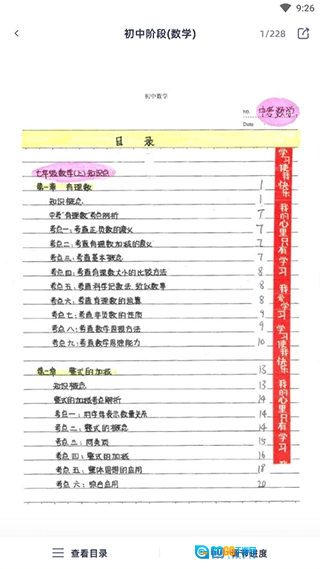 9:26
初中阶段(数学)
1/228
初中数学
No.
中考数学
Date
目 录
七年级数学(上)知识点
第一章 有理数 1
知识概念 1
中考"有理数"考点剖析 7
考点一:考查正负数的意义 7
考点二:考查有理数加减的意义 7
考点三:考查基本概念 7
考点四:考查有理数大小的比较方法 8
考点五:考查科学记数法、近似数等 8
考点六:考查有理数的运算 8
考点七:考查非负数的性质 9
考点八:考查数学思想方法 9
考点九:考查数学思维能力 10
第二章 整式的加减 13
知识概念 13
整式的加减考点解析 14
考点一:用字母表示数量关系 14
考点二:整式的概念 14
考点三:同类项 15
考点四:整式的加减 16
考点五:整体思想的应用 18
考点六:综合应用 20
学习使我快乐 我的心里只有学习 我爱学习 学习使我快乐 我的心里只有学习
查看目录
GO
调节速度